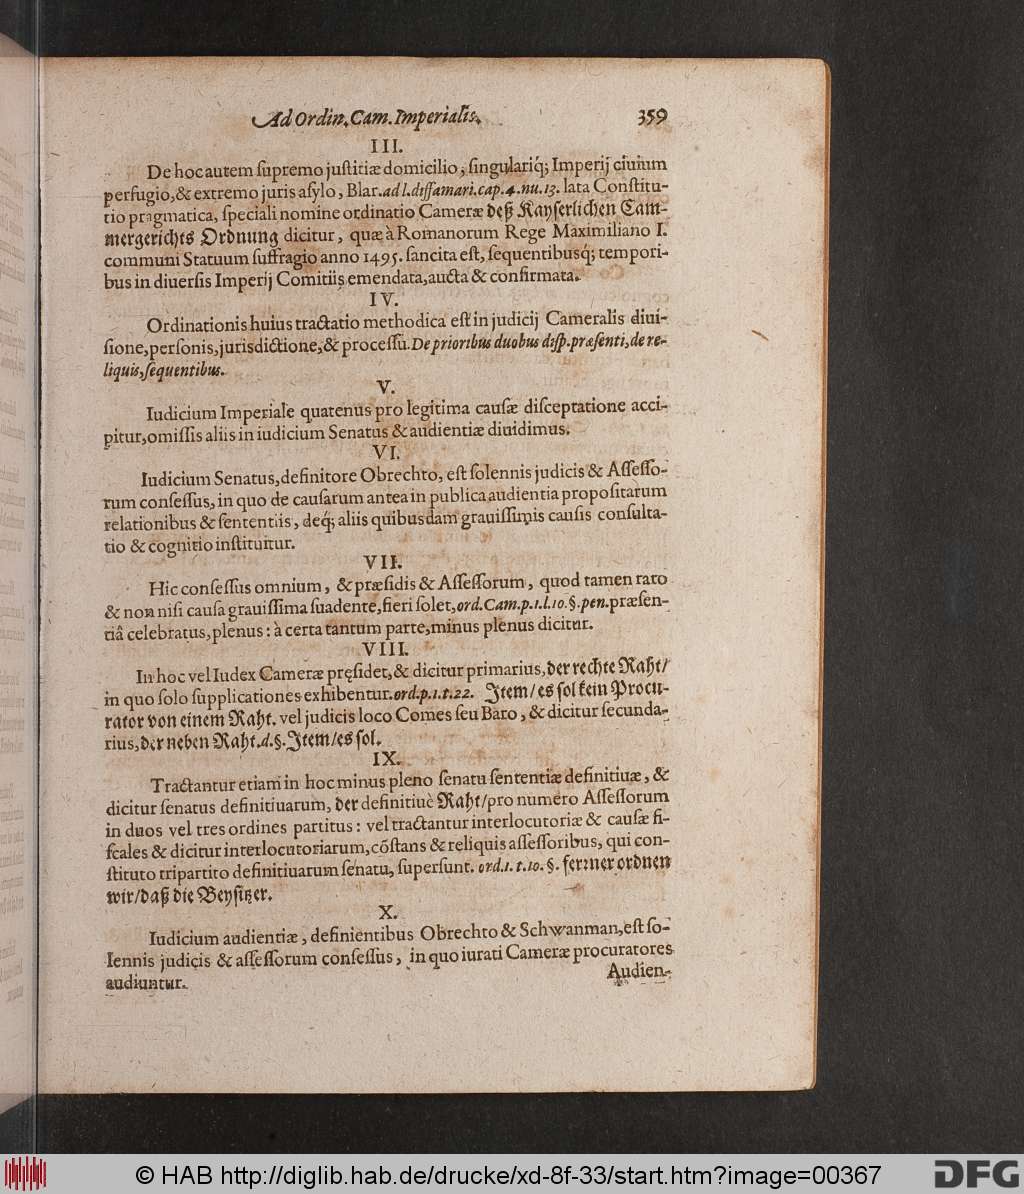 Ad Ordin. Cam. Imperialis. 359
III.
De hoc autem ſupremo juſtitiæ domicilio, ſingulariq́; Imperij ciuium
perfugio, & extremo juris aſylo, Blar. ad l. diffamari. cap. 4. nu. 13. lata Conſtitu-
tio pragmatica, ſpeciali nomine ordinatio Cameræ deß Kayſerlichen Cam-
mergerichts Ordnung dicitur, quæ à Romanorum Rege Maximiliano I.
communi Statuum ſuffragio anno 1495. ſancita eſt, ſequentibusq́; tempori-
bus in diuerſis Imperij Comitiis emendata, aucta & confirmata.
IV.
Ordinationis huius tractatio methodica eſt in judicij Cameralis diui-
ſione, perſonis, jurisdictione, & proceſſu. De prioribus duobus diſp. præſenti, de re-
liquis, ſequentibus.
V.
Iudicium Imperiale quatenus pro legitima cauſæ diſceptatione acci-
pitur, omiſſis aliis in iudicium Senatus & audientiæ diuidimus.
VI.
Iudicium Senatus, definitore Obrechto, eſt ſolennis judicis & Aſſeſſo-
rum conſeſſus, in quo de cauſarum antea in publica audientia propoſitarum
relationibus & ſententiis, deq́; aliis quibusdam grauiſſimis cauſis conſulta-
tio & cognitio inſtituitur.
VII.
Hic conſeſſus omnium, & præſidis & Aſſeſſorum, quod tamen raro
& non niſi cauſa grauiſſima ſuadente, fieri ſolet, ord. Cam. p. 1. l. 10. §. pen. præſen-
tiâ celebratus, plenus: à certa tantum parte, minus plenus dicitur.
VIII.
In hoc vel Iudex Cameræ pręſidet, & dicitur primarius, der rechte Raht/
in quo ſolo ſupplicationes exhibentur. ord. p. 1. t. 22. Item/ es ſol kein Procu-
rator von einem Raht. vel judicis loco Comes ſeu Baro, & dicitur ſecunda-
rius, der neben Raht. d. §. Item/ es ſol.
IX.
Tractantur etiam in hoc minus pleno ſenatu ſententiæ definitiuæ, &
dicitur ſenatus definitiuarum, der definitiuè Raht/ pro numero Aſſeſſorum
in duos vel tres ordines partitus: vel tractantur interlocutoriæ & cauſæ fi-
ſcales & dicitur interlocutoriarum, cõſtans & reliquis aſſeſſoribus, qui con-
ſtituto tripartito definitiuarum ſenatu, ſuperſunt. ord. 1. t. 10. §. ferꝛner ordnen
wir/ daß die Beyſitzer.
X.
Iudicium audientiæ, definientibus Obrechto & Schwanman, eſt ſo-
lennis judicis & aſſeſſorum conſeſſus, in quo iurati Cameræ procuratores
audiuntur.
Audien-
© HAB http://diglib.hab.de/drucke/xd-8f-33/start.htm?image=00367
DFG